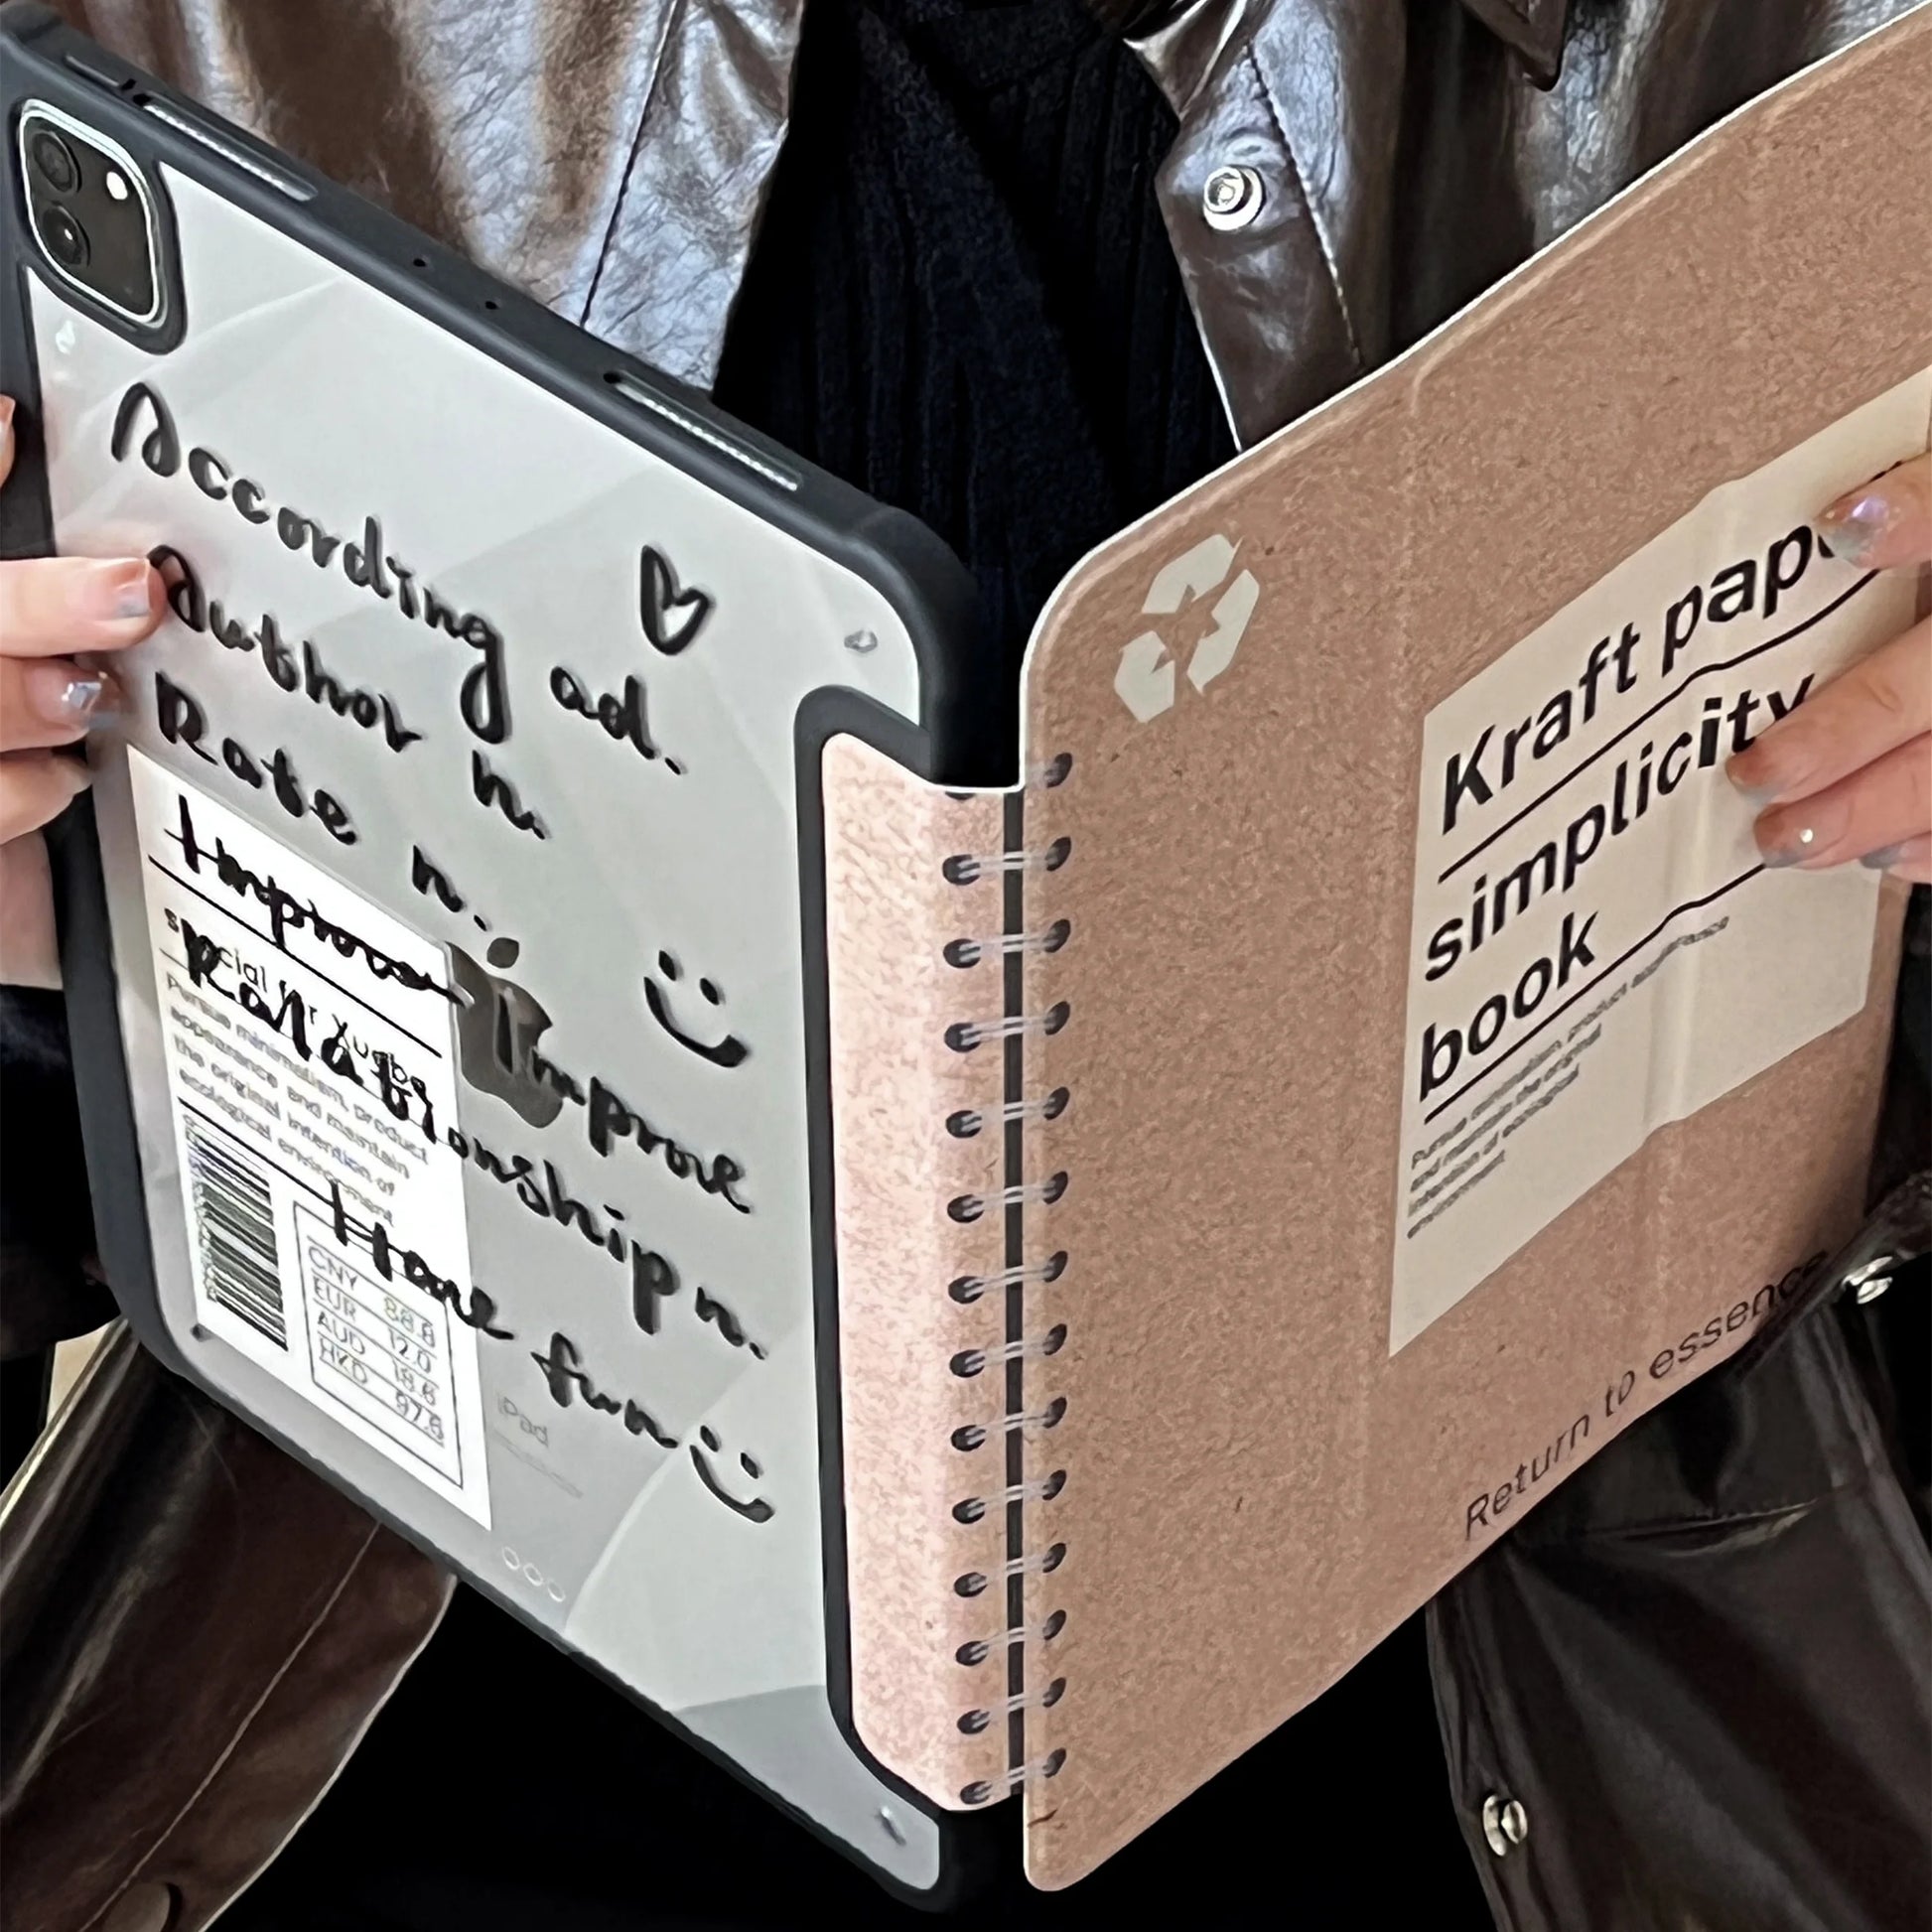 According ad.
Author n.
Rate n.
Improve
special for
Pursue minimalism, product
appearance and maintain
the original intention of
ecological environment
Improve
Relationship n.
Have fun
CNY 88.8
EUR 12.0
AUD 18.6
HKD 97.6
iPad
Kraft pape
simplicity
book
Pursue minimalism, product
and maintain the original
intention of ecological
environment
Return to essence